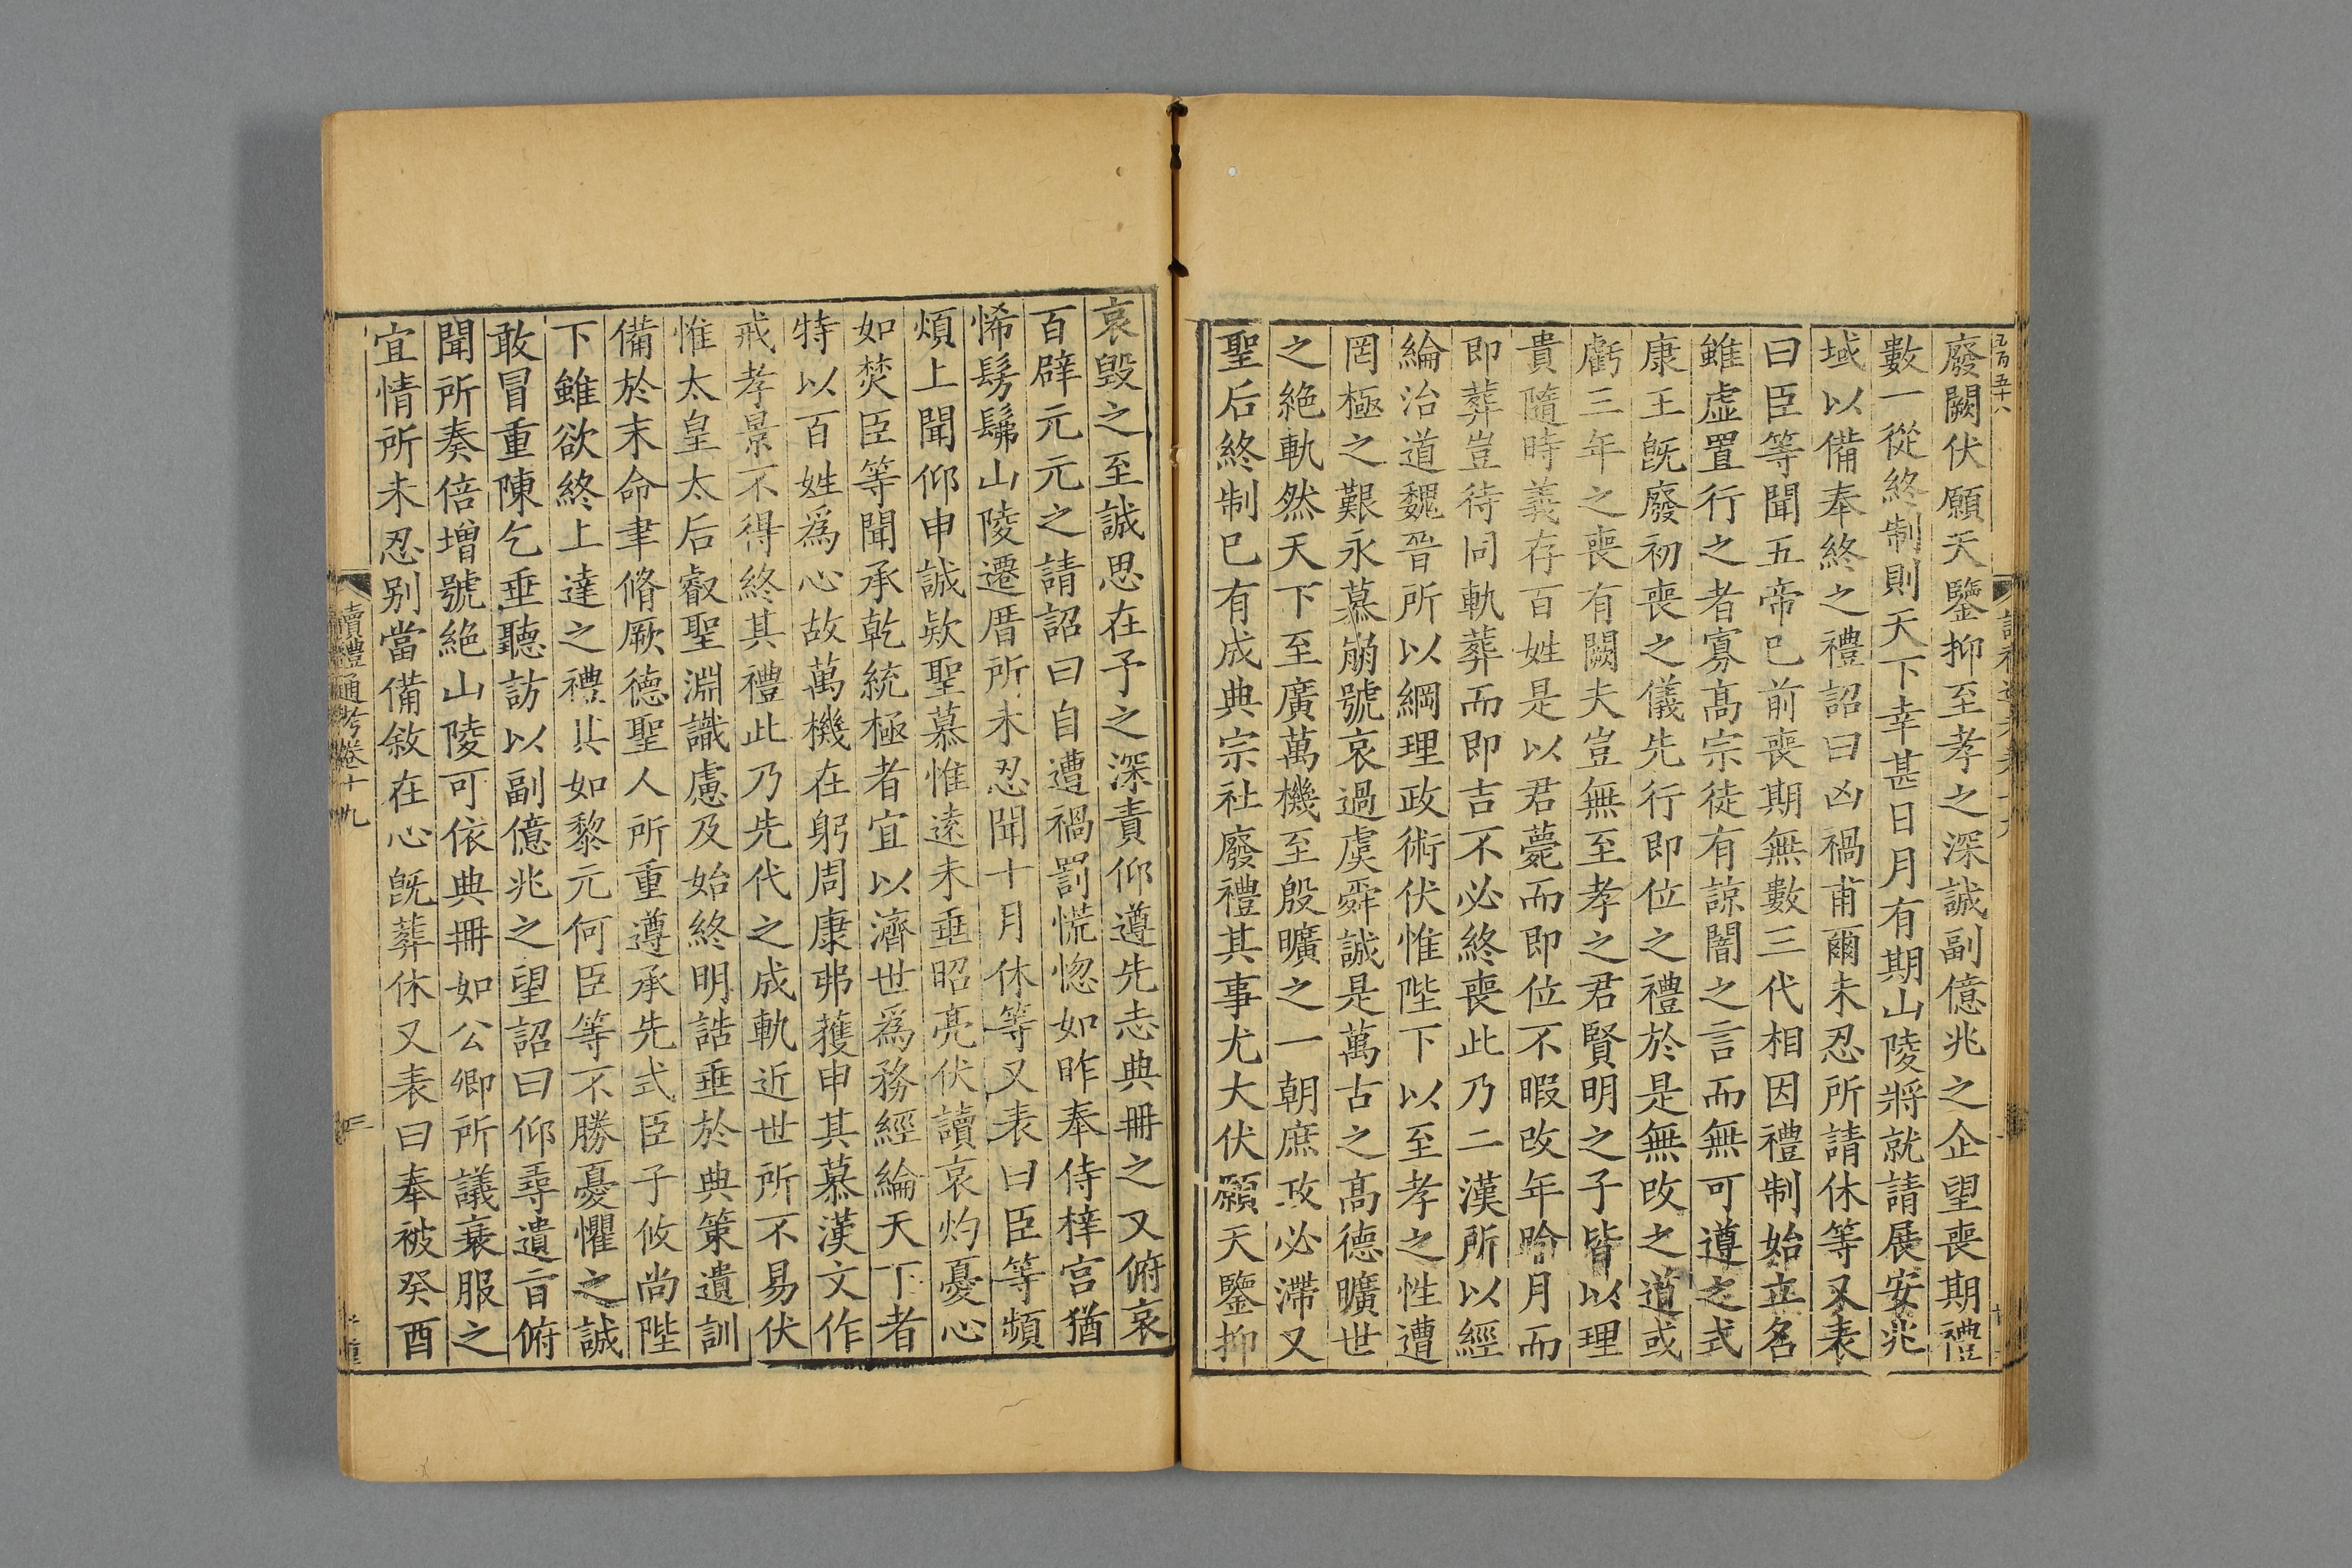 五百五十八
廢闕伏願天鑒抑至孝之深誠副億兆之企望喪期禮
數一從終制則天下幸甚日月有期山陵將就請展安兆
域以備奉終之禮詔曰凶禍甫爾未忍所請休等又表
曰臣等聞五帝已前喪期無數三代相因禮制始立名
雖虛置行之者寡高宗徒有諒闇之言而無可遵之式
康王旣廢初喪之儀先行即位之禮於是無改之道或
虧三年之喪有闕夫豈無至孝之君賢明之子皆以理
貴隨時義存百姓是以君薨而即位不暇改年踰月而
即葬豈待同軌葬而即吉不必終喪此乃二漢所以經
綸治道魏晉所以綱理政術伏惟陛下以至孝之性遭
罔極之艱永慕崩號哀過虞舜誠是萬古之高德曠世
之絶軌然天下至廣萬機至殷曠之一朝庶政必滯又
聖后終制已有成典宗社廢禮其事尤大伏願天鑒抑
哀毀之至誠思在予之深責仰遵先志典冊之文俯哀
百辟元元之請詔曰自遭禍罰慌惚如昨奉侍梓宫猶
悕髣髴山陵遷厝所未忍聞十月休等又表曰臣等頻
煩上聞仰申誠欵聖慕惟遠未垂昭亮伏讀哀灼憂心
如焚臣等聞承乾統極者宜以濟世爲務經綸天下者
特以百姓爲心故萬機在躬周康弗獲申其慕漢文作
戒孝景不得終其禮此乃先代之成軌近世所不易伏
惟太皇太后叡聖淵識慮及始終明誥垂於典策遺訓
備於末命聿脩厥德聖人所重遵承先式臣子攸尚陛
下雖欲終上達之禮其如黎元何臣等不勝憂懼之誠
敢冒重陳乞垂聽訪以副億兆之望詔曰仰尋遺旨俯
聞所奏倍增號絶山陵可依典冊如公卿所議衰服之
宜情所未忍别當備敘在心旣葬休又表曰奉被癸酉
讀禮通考卷十九